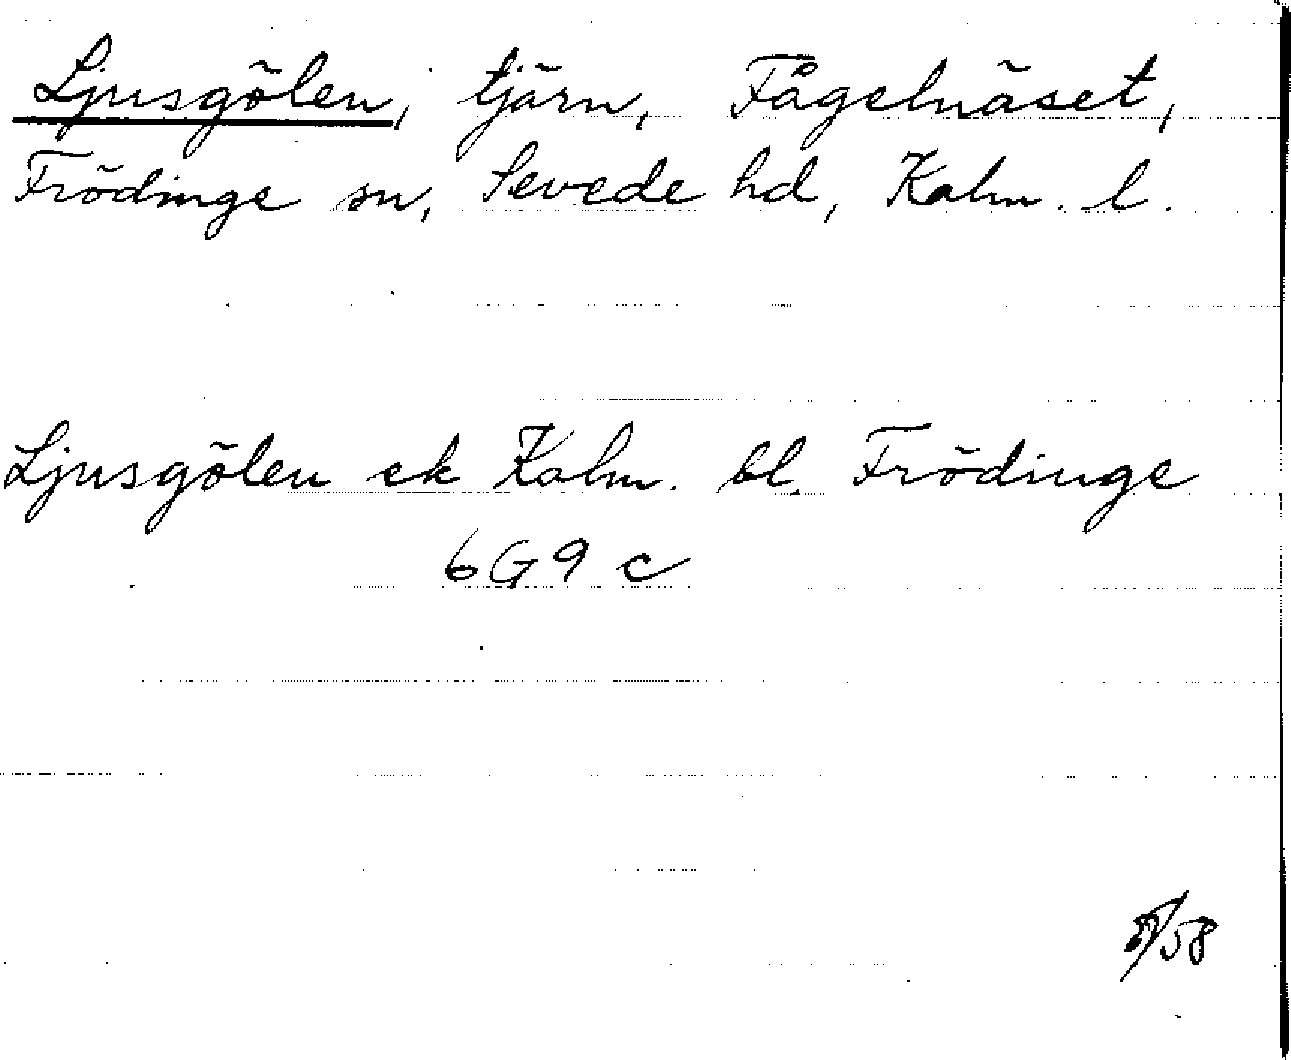 Ljusgölen, tjärn, Fågelnäset,
Frödinge sn, Sevede hd, Kalm. l.
Ljusgölen ek Kalm. bl. Frödinge
6G9 c